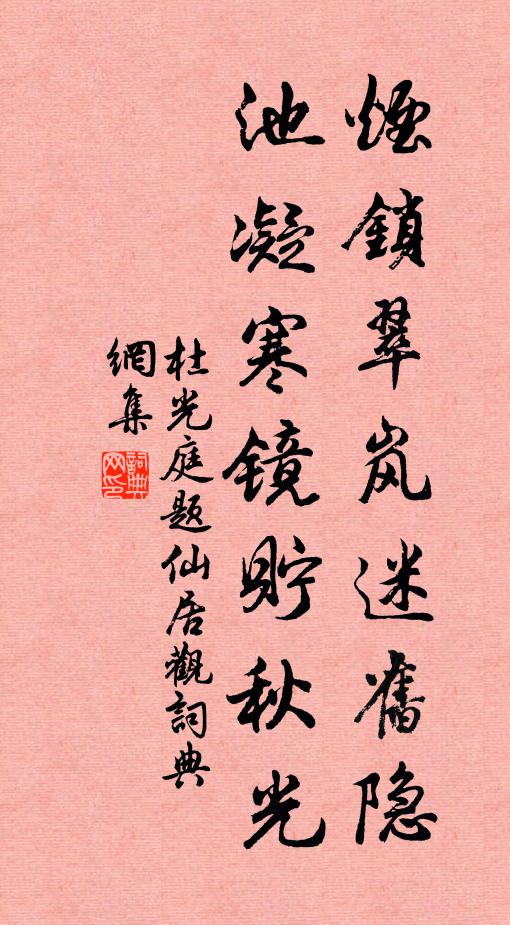 煙鎖翠岚迷舊隐
池凝寒镜貯秋光
杜光庭题仙居觀詞典
網集
詞典网印